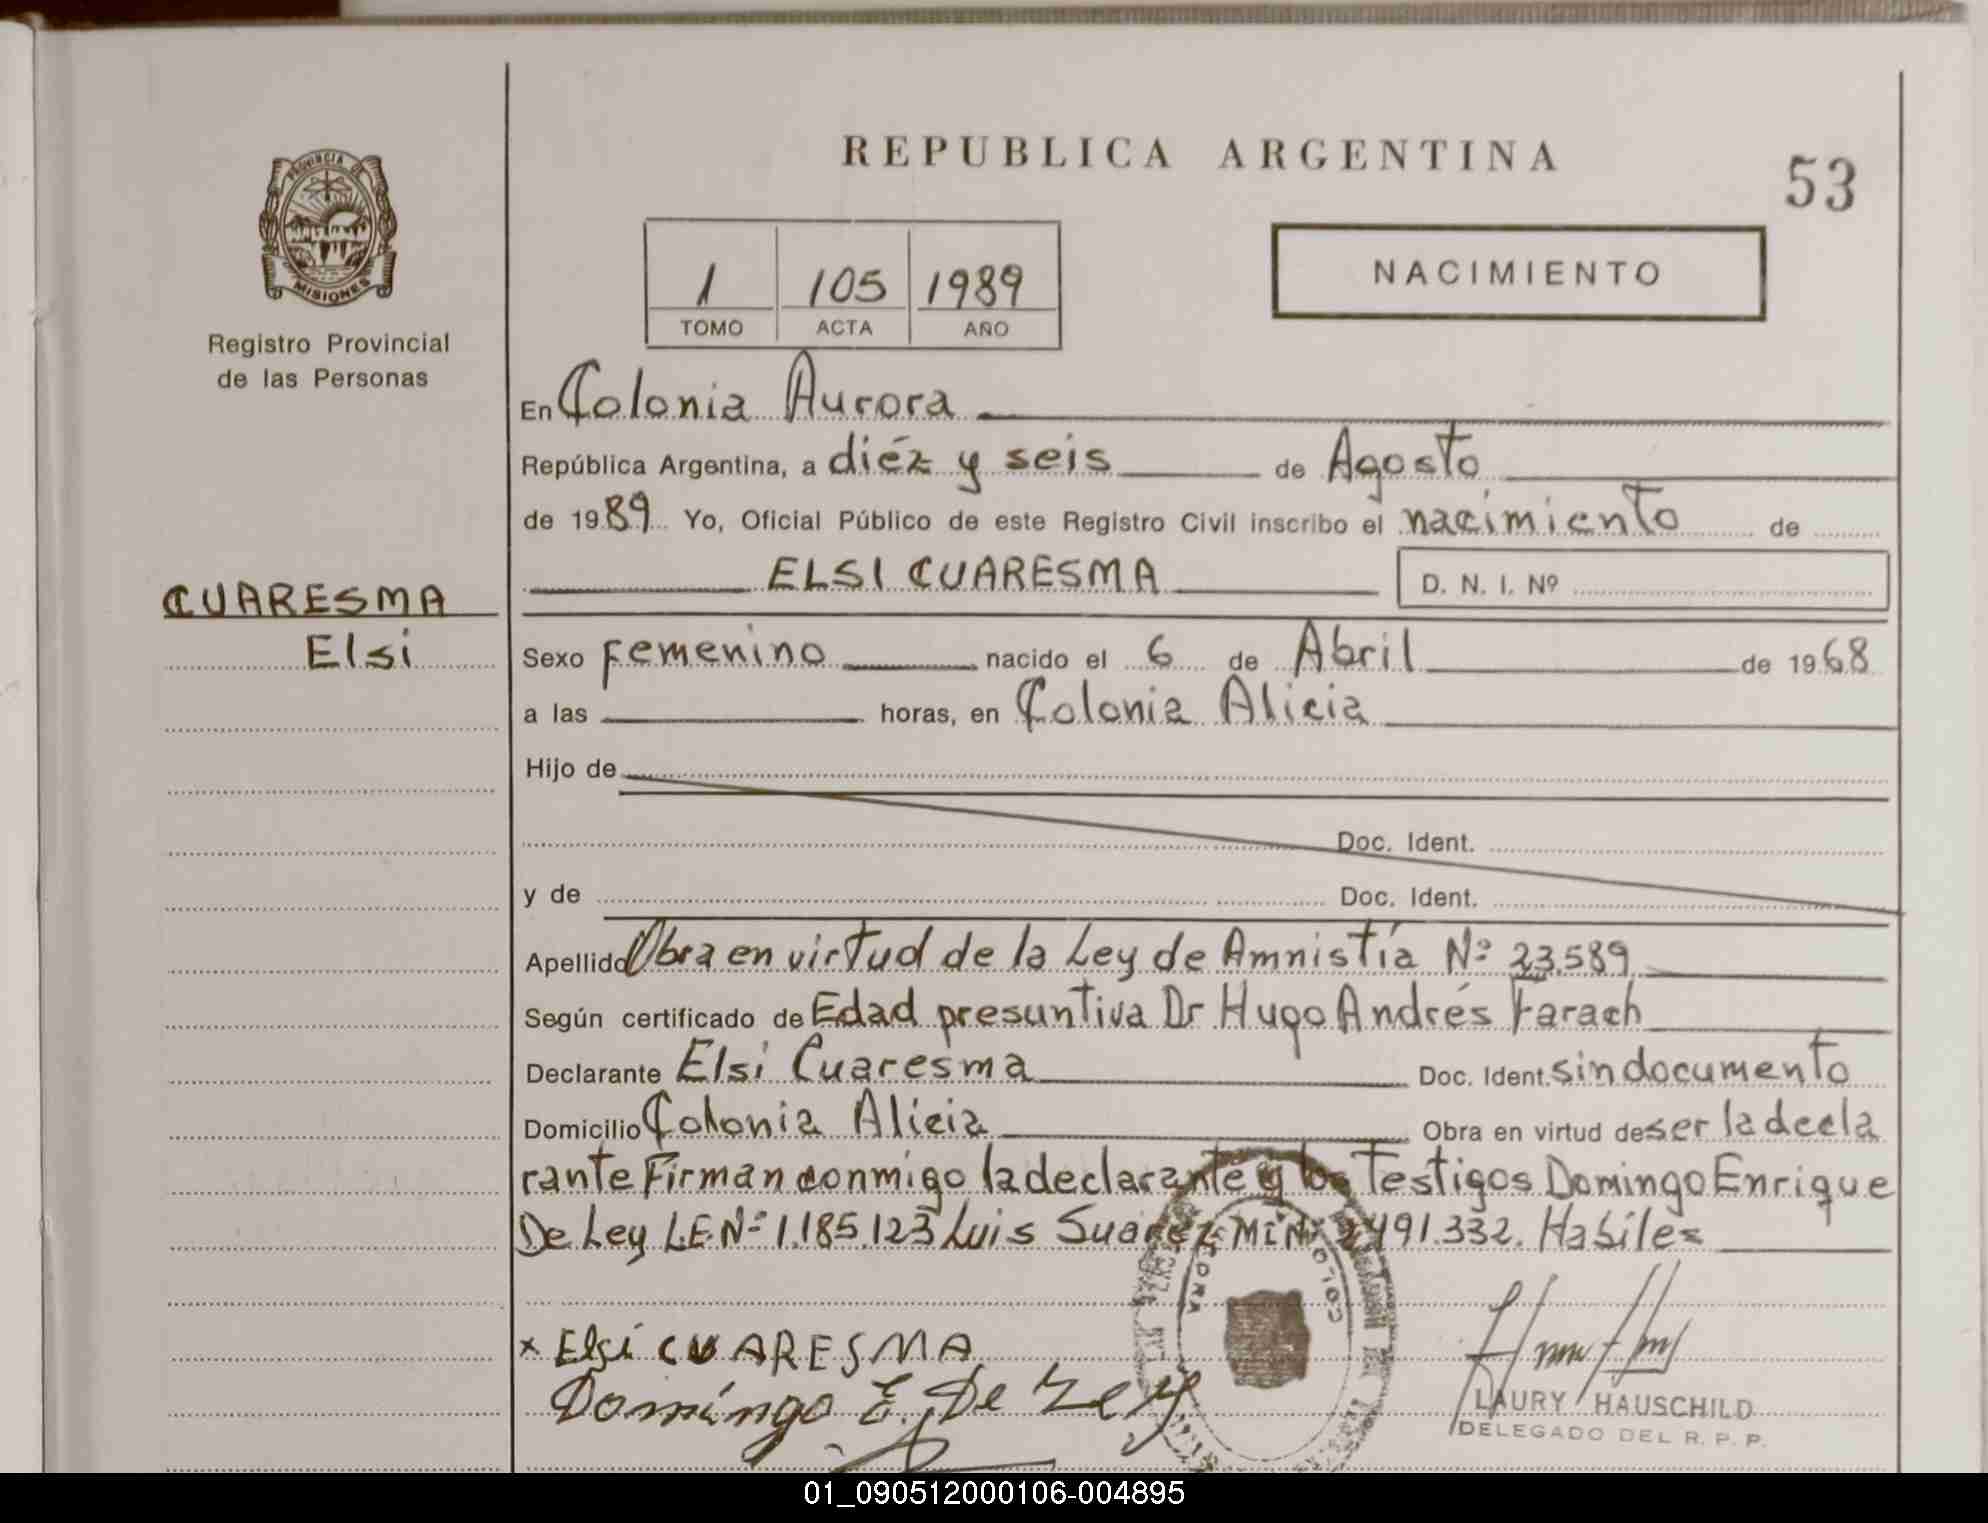 REPUBLICA ARGENTINA
53
PROVINCIA DE
MISIONES
Registro Provincial
de las Personas
1 105 1989
TOMO ACTA AÑO
NACIMIENTO
En Colonia Aurora
República Argentina, a diéz y seis de Agosto
de 1989 Yo, Oficial Público de este Registro Civil inscribo el nacimiento de
ELSI CUARESMA D. N. I. Nº
CUARESMA
Elsi
Sexo Femenino nacido el 6 de Abril de 1968
a las horas, en Colonia Alicia
Hijo de
Doc. Ident.
y de Doc. Ident.
Apellido Obra en virtud de la Ley de Amnistía Nº 23.589
Según certificado de Edad presuntiva Dr Hugo Andrés Farach
Declarante Elsi Cuaresma Doc. Ident. sin documento
Domicilio Colonia Alicia Obra en virtud de ser la decla
rante Firman conmigo la declarante y los Testigos Domingo Enrique
De Ley L.E.Nº 1.185.123 Luis Suarez MI Nº 2491.332. Habiles
x Elsi CUARESMA
Domingo E. De Ley
LAURY HAUSCHILD
DELEGADO DEL R. P. P.
01_090512000106-004895